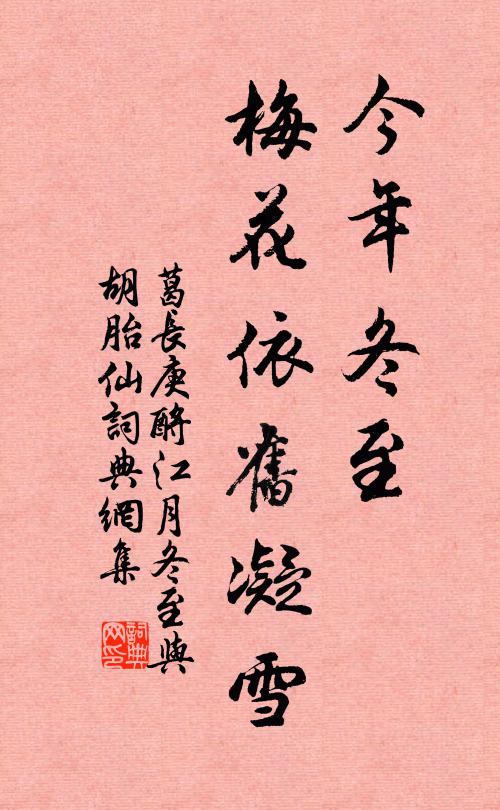 今年冬至
梅花依舊凝雪
葛長庚酹江月冬至與
胡胎仙詞典網集
詞典
网印